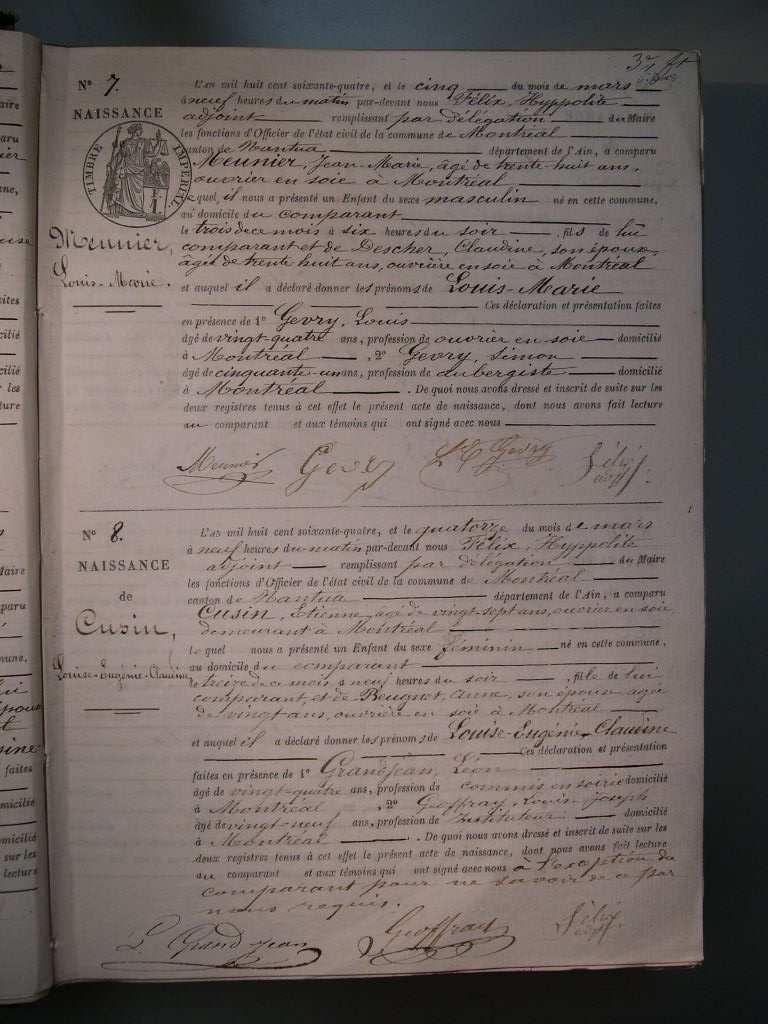 37
N° 7.
NAISSANCE
TIMBRE IMPERIAL
Meunier,
Louis-Marie.
L'an mil huit cent soixante-quatre, et le cinq du mois de mars
à neuf heures du matin par-devant nous Félix, Hyppolite
adjoint remplissant par délégation du Maire
les fonctions d'Officier de l'état civil de la commune de Montréal
canton de Nantua département de l'Ain, a comparu
Meunier, Jean-Marie, âgé de trente-huit ans,
ouvrier en soie à Montréal
lequel, il nous a présenté un Enfant du sexe masculin né en cette commune,
au domicile du comparant
le trois de ce mois à six heures du soir fils de lui
comparant et de Descher, Claudine, son épouse,
âgée de trente huit ans, ouvrière en soie à Montréal
et auquel il a déclaré donner les prénoms de Louis-Marie
Ces déclaration et présentation faites
en présence de 1° Gevry, Louis
âgé de vingt-quatre ans, profession de ouvrier en soie domicilié
à Montréal, 2° Gevry, Simon
âgé de cinquante-un ans, profession de aubergiste domicilié
à Montréal. De quoi nous avons dressé et inscrit de suite sur les
deux registres tenus à cet effet le présent acte de naissance, dont nous avons fait lecture
au comparant et aux témoins qui ont signé avec nous
Meunier Gevry Gevry Félix adjt.
N° 8.
NAISSANCE
de
Cusin,
Louise-Eugénie-Claudine
L'an mil huit cent soixante-quatre, et le quatorze du mois de mars
à neuf heures du matin par-devant nous Félix, Hyppolite
adjoint remplissant par délégation du Maire
les fonctions d'Officier de l'état civil de la commune de Montréal
canton de Nantua département de l'Ain, a comparu
Cusin, Etienne, âgé de vingt-sept ans, ouvrier en soie,
demeurant à Montréal
lequel nous a présenté un Enfant du sexe féminin né en cette commune,
au domicile du comparant
le treize de ce mois à neuf heures du soir fille de lui
comparant, et de Beugnet, Anne, son épouse âgée
de vingt ans, ouvrière en soie à Montréal
et auquel il a déclaré donner les prénoms de Louise-Eugénie-Claudine
Ces déclaration et présentation
faites en présence de 1° Grandjean, Léon
âgé de vingt-quatre ans, profession de commis en soierie domicilié
à Montréal, 2° Geoffray, Louis-Joseph
âgé de vingt-neuf ans, profession de Instituteur domicilié
à Montréal. De quoi nous avons dressé et inscrit de suite sur les
deux registres tenus à cet effet le présent acte de naissance, dont nous avons fait lecture
au comparant et aux témoins qui ont signé avec nous à l'exception du
comparant pour ne savoir de ce par
nous requis.
L. Grand Jean Geoffray Félix adjt.